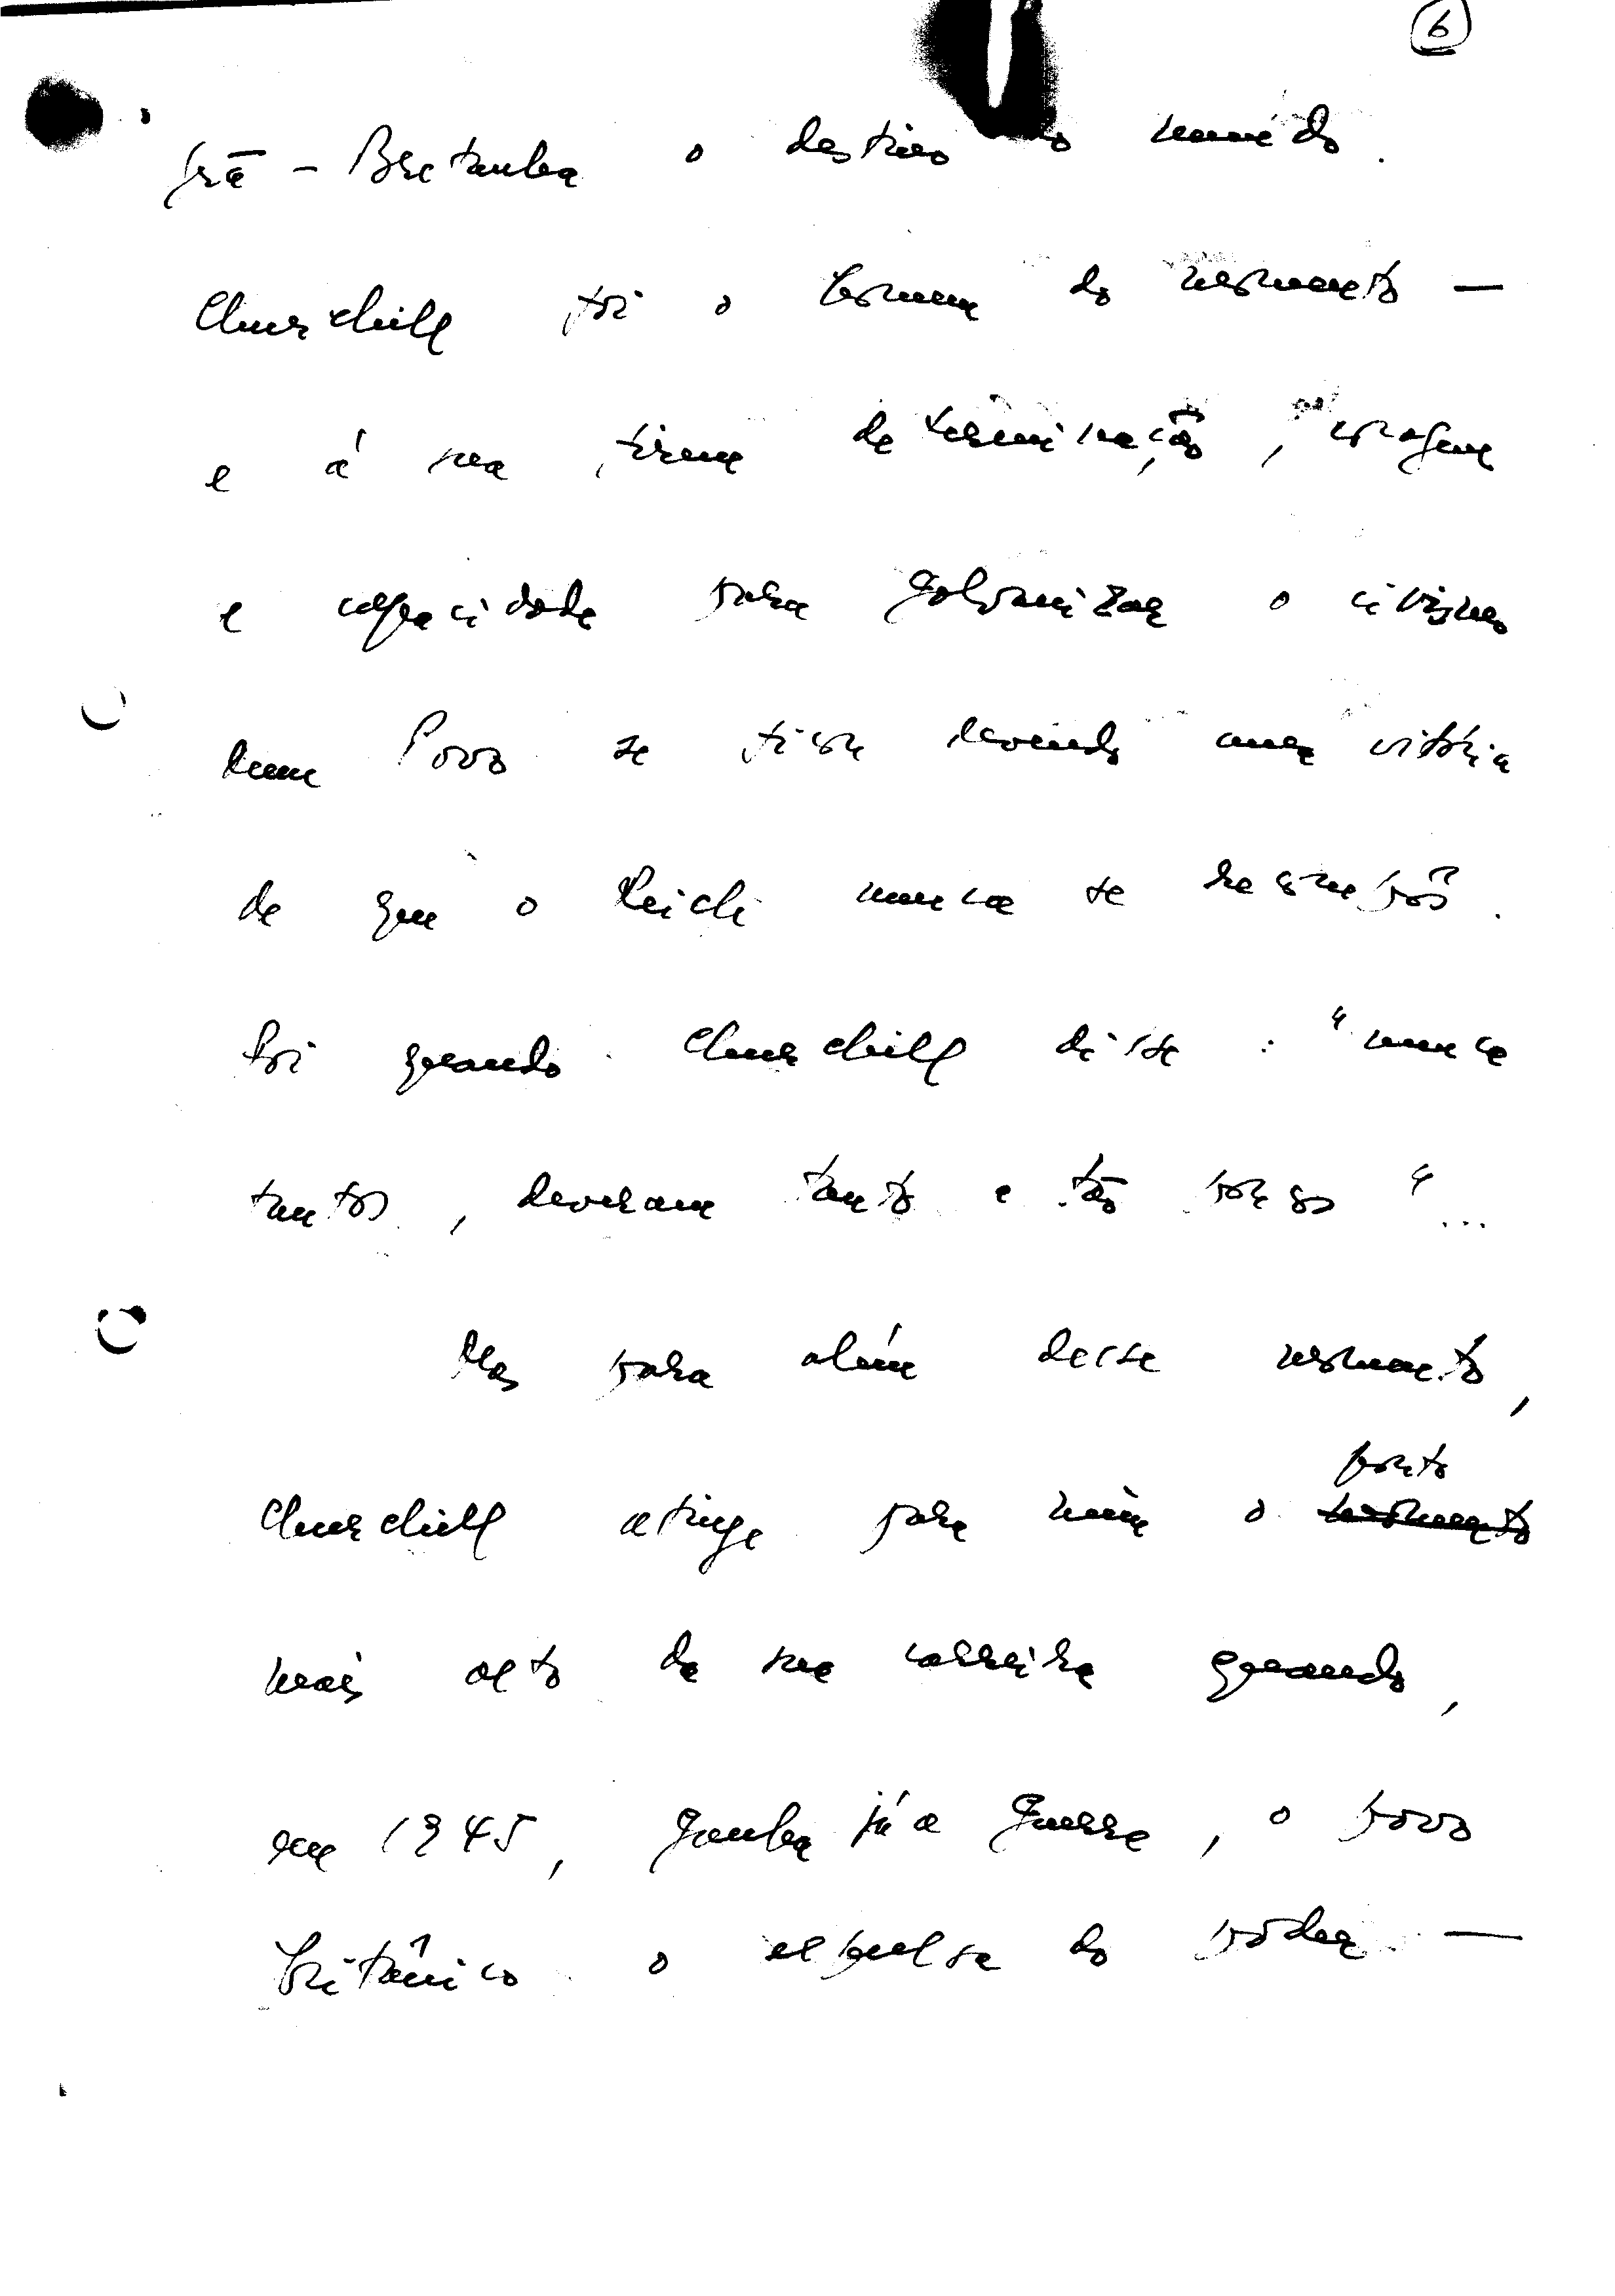 6
Grã-Bretanha o destino do mundo.
Churchill foi o homem do momento —
e á sua firme determinação, coragem
e capacidade para galvanizar o civismo
dum Povo se ficou devendo uma vitória
de que o Reich nunca se recompôs.
Foi quando Churchill disse: "nunca
tantos, deveram tanto e tão poucos"...
Mas para além desse momento,
ponto
Churchill atinge para mim o momento
mais alto da sua carreira quando,
em 1945, ganha já a Guerra, o povo
britânico o expulsa do poder —